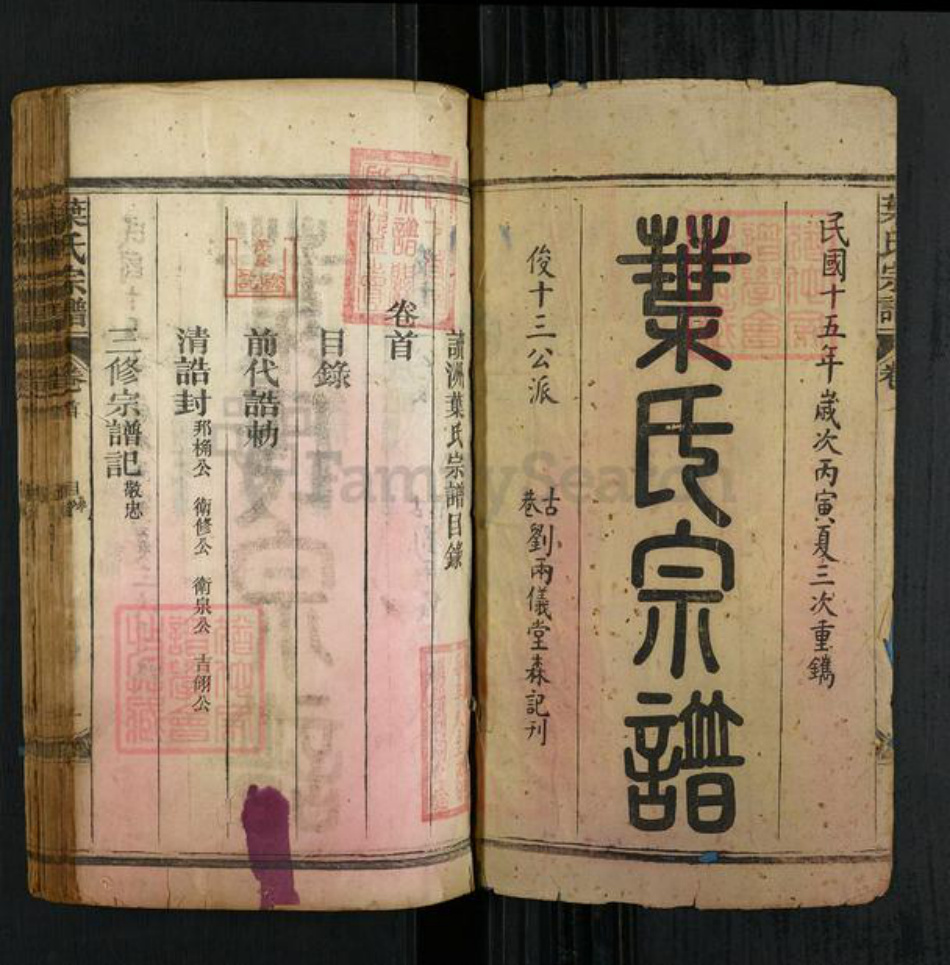 民國十五年歲次丙寅夏三次重鐫
葉氏宗譜
俊十三公派
古巷劉兩儀堂森記刊
洲葉氏宗譜目錄
卷首
目錄
前代誥勅
清誥封 邦桷公 衛修公 衛泉公 吉翎公
三修宗譜記 敬忠
葉氏宗譜
卷首
目錄
葉氏宗譜
卷
FamilySearch